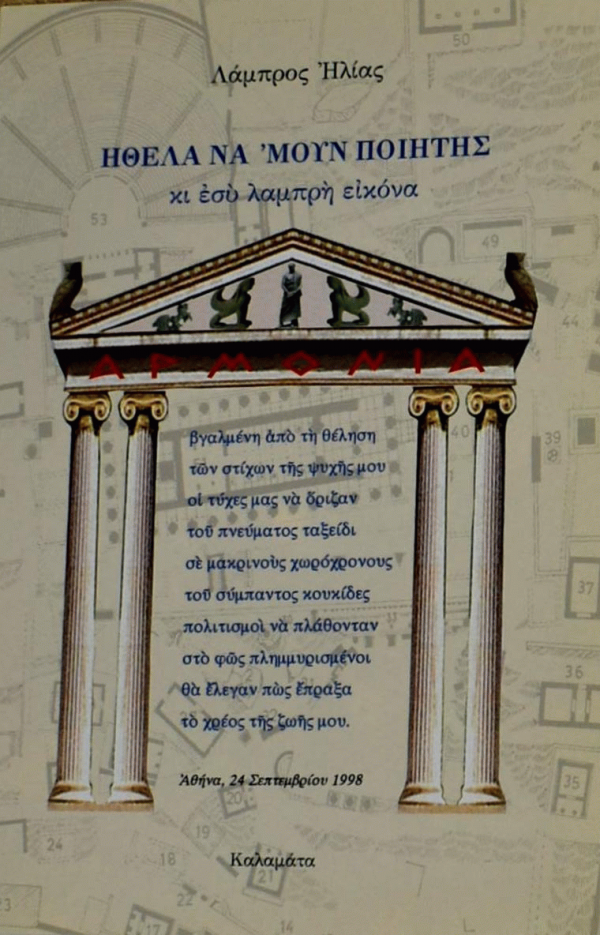 Λάμπρος Ἠλίας
ΗΘΕΛΑ ΝΑ ’ΜΟΥΝ ΠΟΙΗΤΗΣ
κι ἐσὺ λαμπρὴ εἰκόνα
ΑΡΜΟΝΙΑ
βγαλμένη ἀπὸ τὴ θέληση
τῶν στίχων τῆς ψυχῆς μου
οἱ τύχες μας νὰ ὅριζαν
τοῦ πνεύματος ταξεῖδι
σὲ μακρινοὺς χωρόχρονους
τοῦ σύμπαντος κουκίδες
πολιτισμοὶ νὰ πλάθονταν
στὸ φῶς πλημμυρισμένοι
θὰ ἔλεγαν πὼς ἔπραξα
τὸ χρέος τῆς ζωῆς μου.
Ἀθήνα, 24 Σεπτεμβρίου 1998
Καλαμάτα
50
53
49
44
40
39
37
36
35
24
20
19
18
21
22
23
17
14